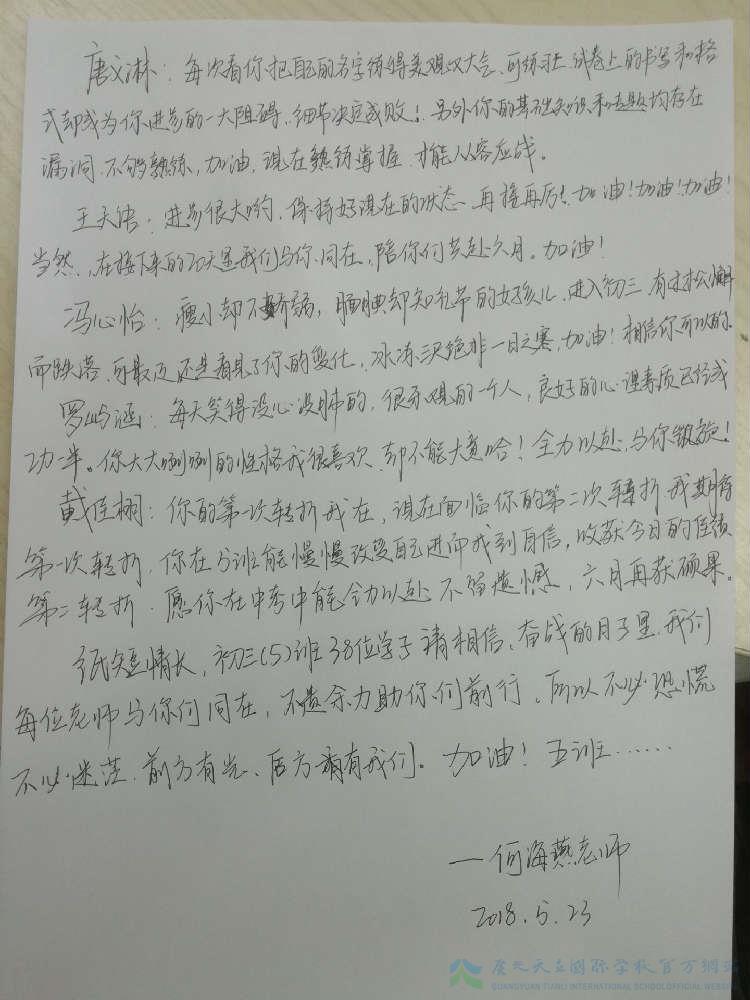 唐文淋：每次看你把自己的名字练得美观又大气、可练习上、试卷上的书写和格
式却成为你进步的一大阻碍、细节决定成败！另外你的基础知识和专题均存在
漏洞、不够熟练，加油，现在熟练掌握，才能从容应战。
王天浩：进步很大哟，保持好现在的状态、再接再厉！加油！加油！加油！
当然，在接下来的20天里我们与你同在，陪你们共赴六月。加油！
冯心怡：瘦小却不娇弱，腼腆却知礼节的女孩儿、进入初三有过松懈
而跌落、可最近还是看见了你的变化，冰冻三尺绝非一日之寒，加油！相信你可以的。
罗屿涵：每天笑得没心没肺的，很乐观的一个人，良好的心理素质已经成
功一半。你大大咧咧的性格我很喜欢、却不能大意哈！全力以赴，与你绽放！
戴佳栩：你的第一次转折我在，现在面临你的第二次转折我期待
第一次转折，你在5班能慢慢改变自己进而找到自信，收获今日的佳绩
第二转折，愿你在中考中能全力以赴不留遗憾，六月再获硕果。
纸短情长，初三(5)班38位学子请相信，奋战的日子里，我们
每位老师与你们同在，不遗余力助你们前行。所以不必恐慌
不必迷茫、前方有光、后方有我们。加油！五班……
—何海燕老师
2018.5.23
广元天立国际学校官方网站
GUANGYUAN TIANLI INTERNATIONAL SCHOOL OFFICIAL WEBSITE